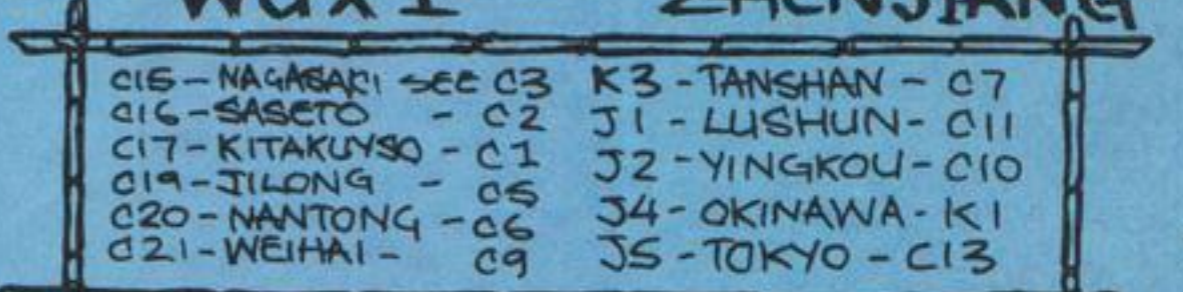 WUXI ZHENJIANG
C15-NAGASAKI SEE C3
C16-SASETO - C2
C17-KITAKUYSO - C1
C19-JILONG - C5
C20-NANTONG - C6
C21-WEIHAI - C9
K3-TANSHAN - C7
J1-LUSHUN- C11
J2-YINGKOU- C10
J4-OKINAWA- K1
J5-TOKYO - C13